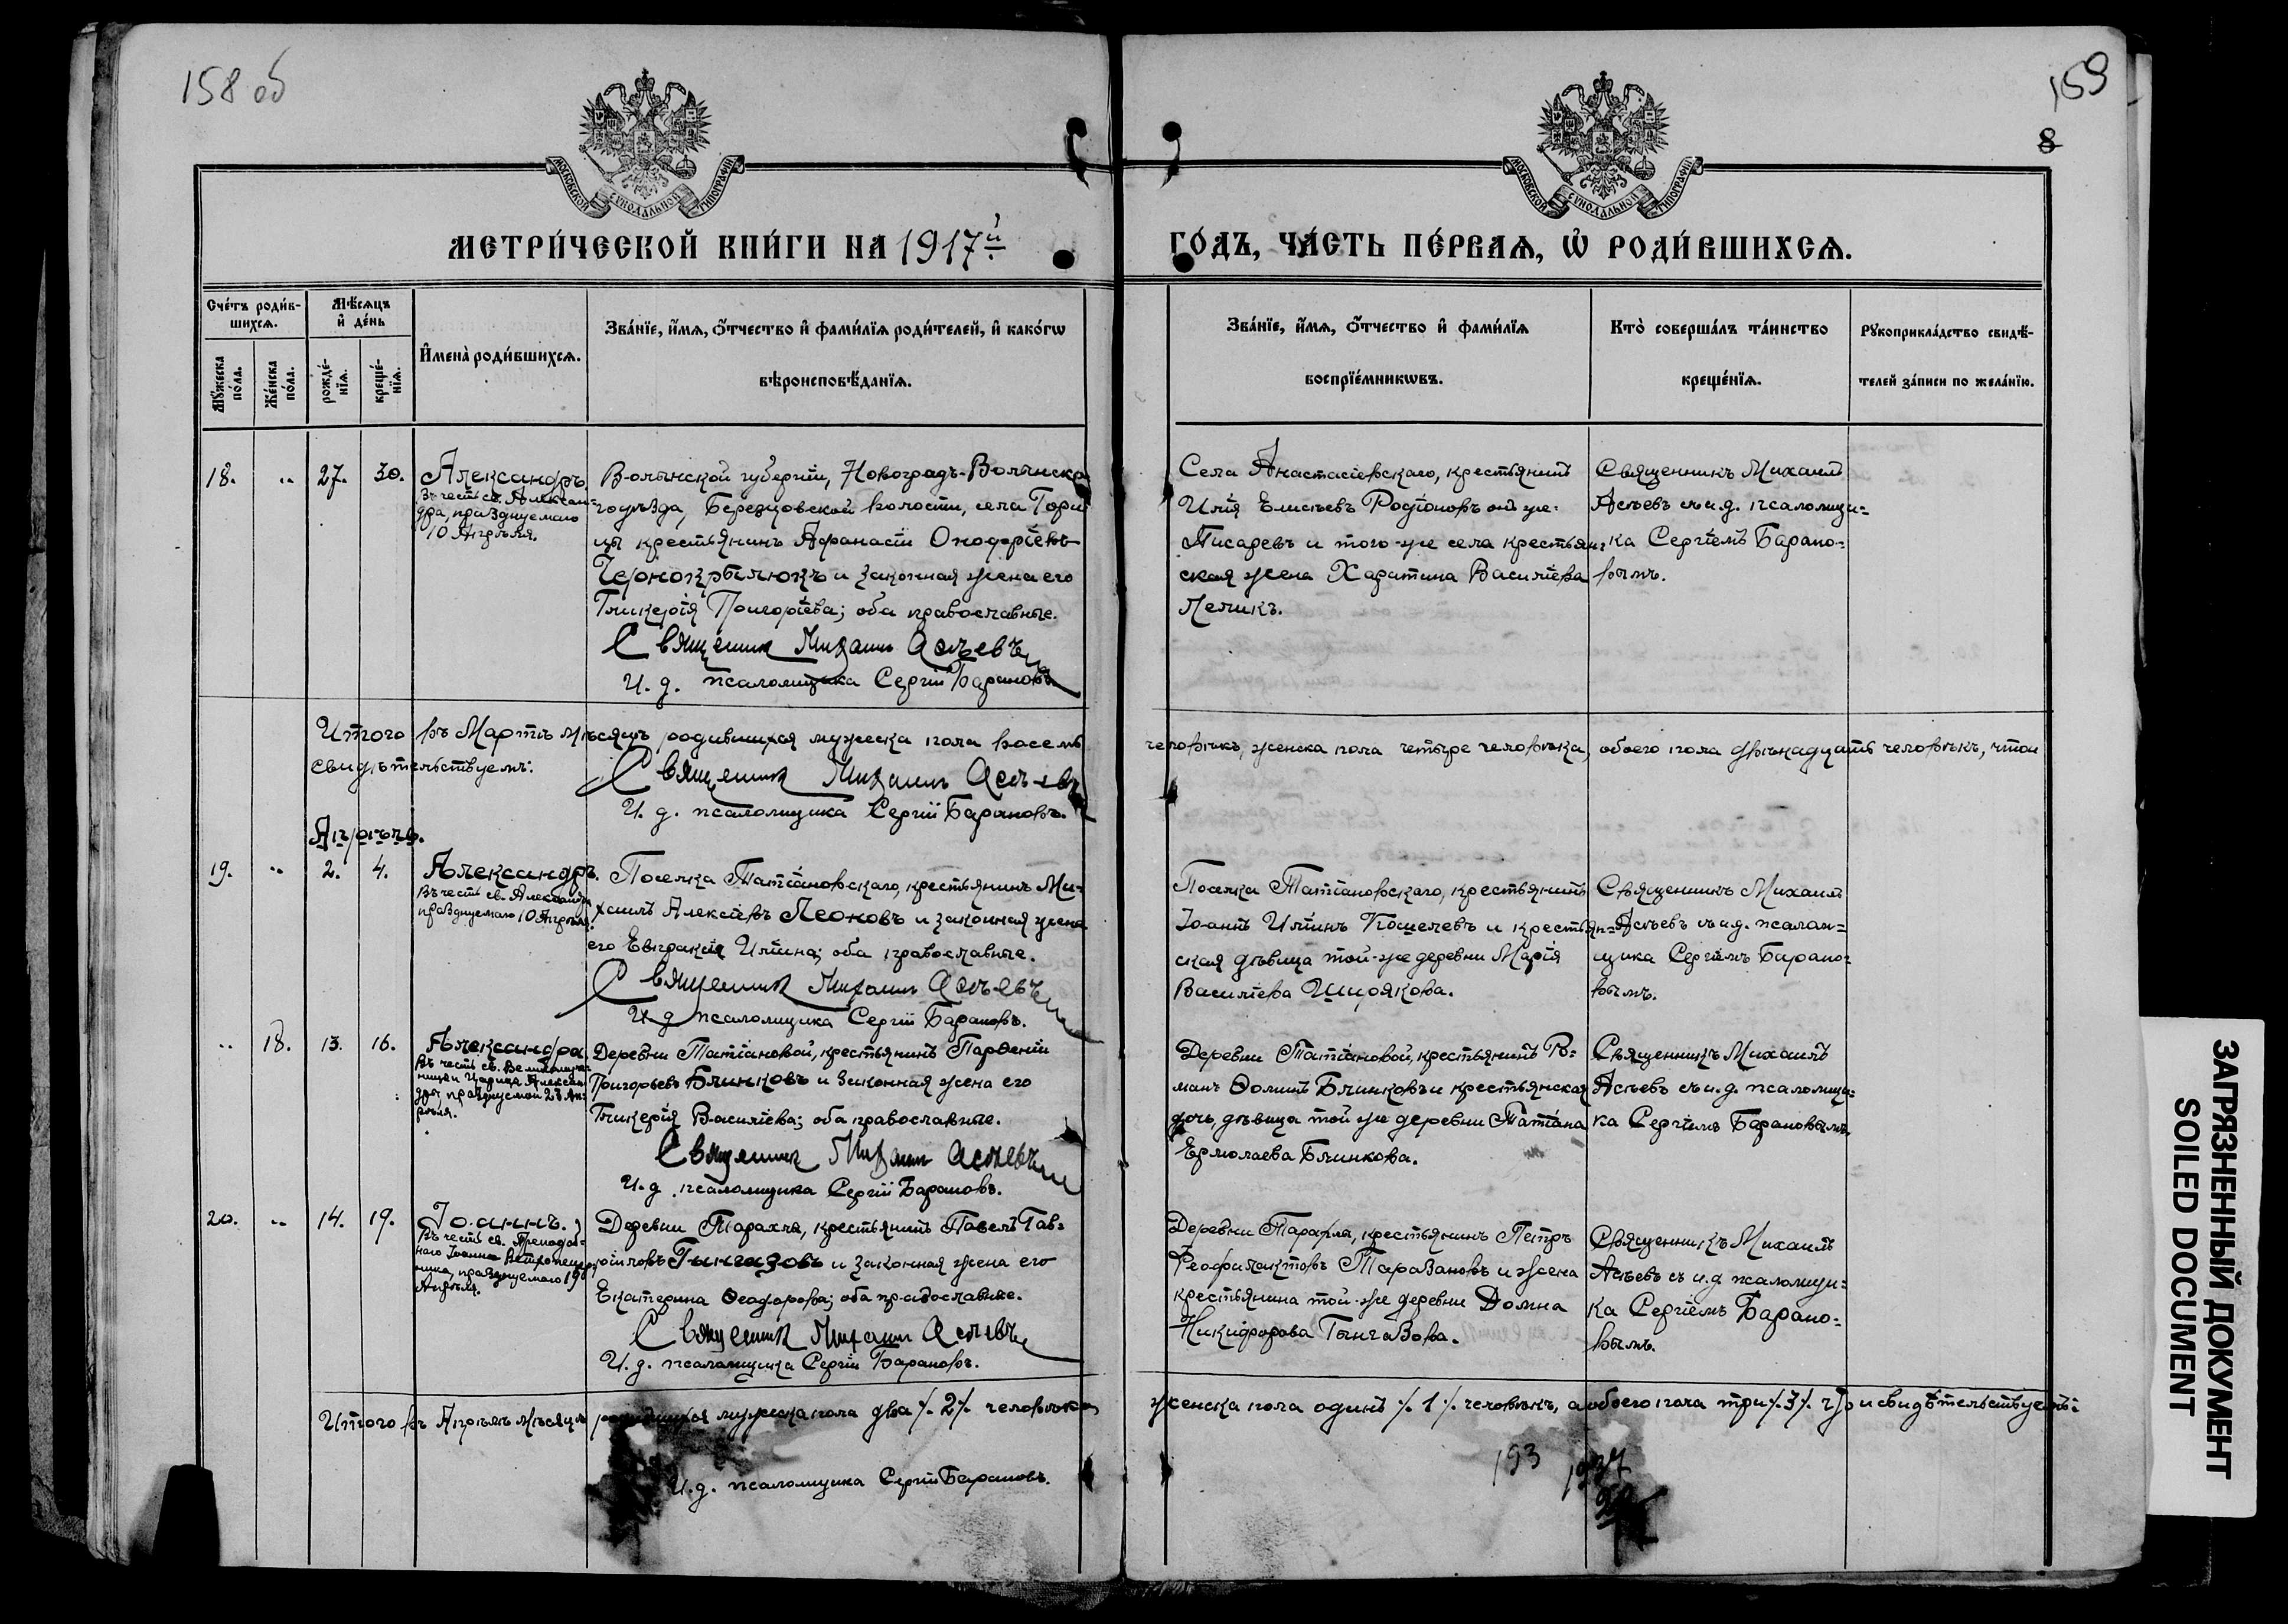 158 об
159
8
МОСКОВСКОЙ СѴНОДАЛЬНОЙ ТИПОГРАФІИ
МОСКОВСКОЙ СѴНОДАЛЬНОЙ ТИПОГРАФІИ
МЕТРИ́ЧЕСКОЙ КНИ́ГИ НА 1917й
ГО́ДЪ, ЧА́СТЬ ПЕ́РВАЯ, Ѡ РОДИ́ВШИХСЯ.
Сче́тъ роди́в-
шихся.
Мѣ́сяцъ
и де́нь
Му́жеска
по́ла.
Же́нска
по́ла.
рожде́-
нїя.
креще́-
нїя.
Имена̀ роди́вшихся.
Зва́нїе, и́мя, о́тчество и фами́лїя роди́телей, и како́гѡ
вѣроисповѣ́данїя.
Зва́нїе, и́мя, о́тчество и фами́лїя
воспрїе́мникѡвъ.
Кто̀ соверша́лъ та́инство
креще́нїя.
Рукоприкла́дство свидѣ́-
телей за́писи по жела́нїю.
18. „ 27. 30. Александръ
Въ честь св. Алексан-
дра, празднуемаго
10 Апрѣля.
Волынской губерніи, Новоградъ-Волынска-
го уѣзда, Березовской волости, села
крестьянинъ Афанасій Онофріевъ
Чернокрылюкъ и законная жена его
Гликерія Григоріева; оба православные.
Священникъ Михаилъ Асѣевъ
И. д. псаломщика Сергій Барановъ
Села Анастасіевскаго, крестьянинъ
Илія Елисѣевъ Родіоновъ онъ же-
Писаревъ и того-же села крестьян-
ская жена Харитина Василіева
Леликъ.
Священникъ Михаилъ
Асѣевъ съ и.д. псаломщи-
ка Сергіемъ Барано-
вымъ.
Итого въ Мартѣ мѣсяцѣ родившихся мужеска пола восемь
человѣкъ, женска пола четыре человѣка, обоего пола двѣнадцать человѣкъ, что и
свидѣтельствуемъ:
Священникъ Михаилъ Асѣевъ
И. д. псаломщика Сергій Барановъ.
Апрѣль.
19. „ 2. 4. Александръ.
Въ честь св. Александра
празднуемаго 10 Апрѣля.
Поселка Татіановскаго, крестьянинъ Ми-
хаилъ Алексіевъ Леоновъ и законная жена
его Евпраксія Иліина; оба православные.
Священникъ Михаилъ Асѣевъ
И. д. псаломщика Сергій Барановъ.
Поселка Татіановскаго, крестьянинъ
Іоаннъ Иліинъ Кошелевъ и крестьян-
ская дѣвица той-же деревни Марія
Василіева Ширякова.
Священникъ Михаилъ
Асѣевъ съ и.д. псалом-
щика Сергіемъ Барано-
вымъ.
„ 18. 13. 16. Александра
Въ честь св. Великомуче-
ницы Царицы Алексан-
дры, празднуемой 23 Ап-
рѣля.
Деревни Татіановой, крестьянинъ Парѳеній
Григорьевъ Блинковъ и законная жена его
Гликерія Василіева; оба православные.
Священникъ Михаилъ Асѣевъ
И. д. псаломщика Сергій Барановъ.
Деревни Татіановой, крестьянинъ Ро-
манъ Ѳоминъ Блинковъ и крестьянская
дочь, дѣвица той же деревни Татіана
Ермолаева Блинкова.
Священникъ Михаилъ
Асѣевъ съ и.д. псаломщи-
ка Сергіемъ Барановымъ.
20. „ 14. 19. Іоаннъ.
Въ честь св. Преподоб-
наго Іоанна Ветхопещер-
ника, празднуемаго 19
Апрѣля.
Деревни Тарахла, крестьянинъ Павелъ Гав-
ріиловъ Тынгазовъ и законная жена его
Екатерина Ѳеодорова; оба православные.
Священникъ Михаилъ Асѣевъ
И. д. псаломщика Сергій Барановъ.
Деревни Тарахла, крестьянинъ Петръ
Феофилактовъ Таразановъ и жена
крестьянина той-же деревни Домна
Никифорова Тынгазова.
Священникъ Михаилъ
Асѣевъ съ и.д псаломщи-
ка Сергіемъ Барано-
вымъ.
Итого въ Апрѣлѣ мѣсяцѣ родившихся мужеска пола два /. 2 /. человѣка,
женска пола одинъ /. 1 /. человѣкъ, а обоего пола три /. 3 /. что и свидѣтельствуемъ:
И. д. псаломщика Сергій Барановъ.
193
1937
ЗАГРЯЗНЕННЫЙ ДОКУМЕНТ
SOILED DOCUMENT